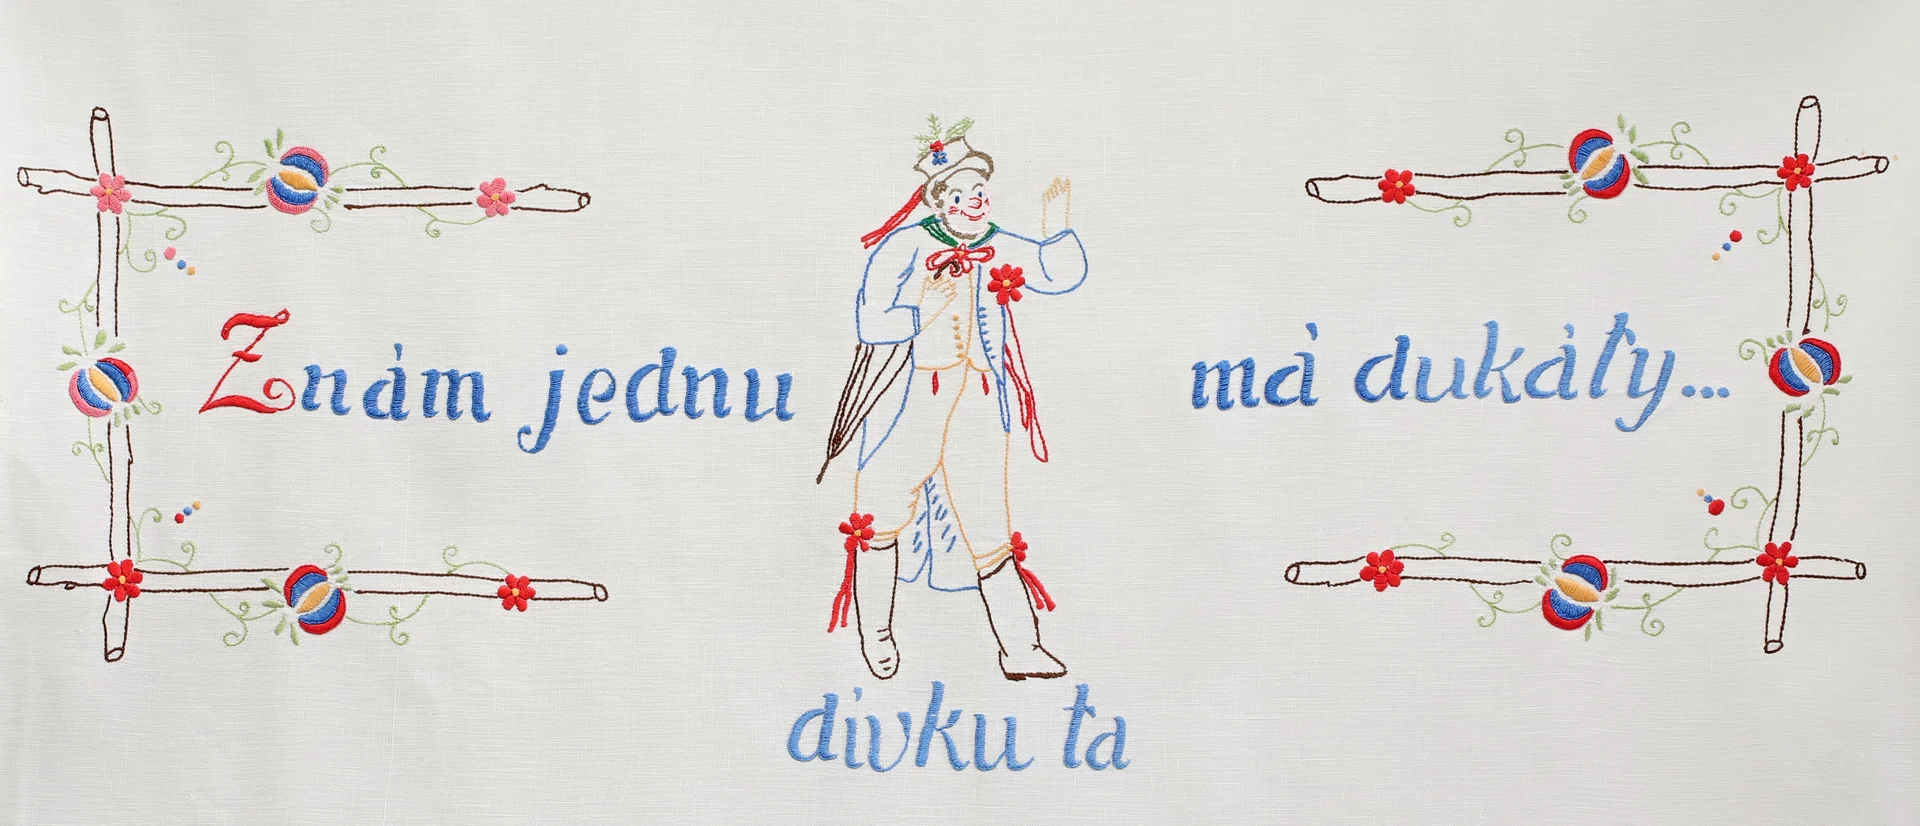 Znám jednu
dívku ta
má dukáty...